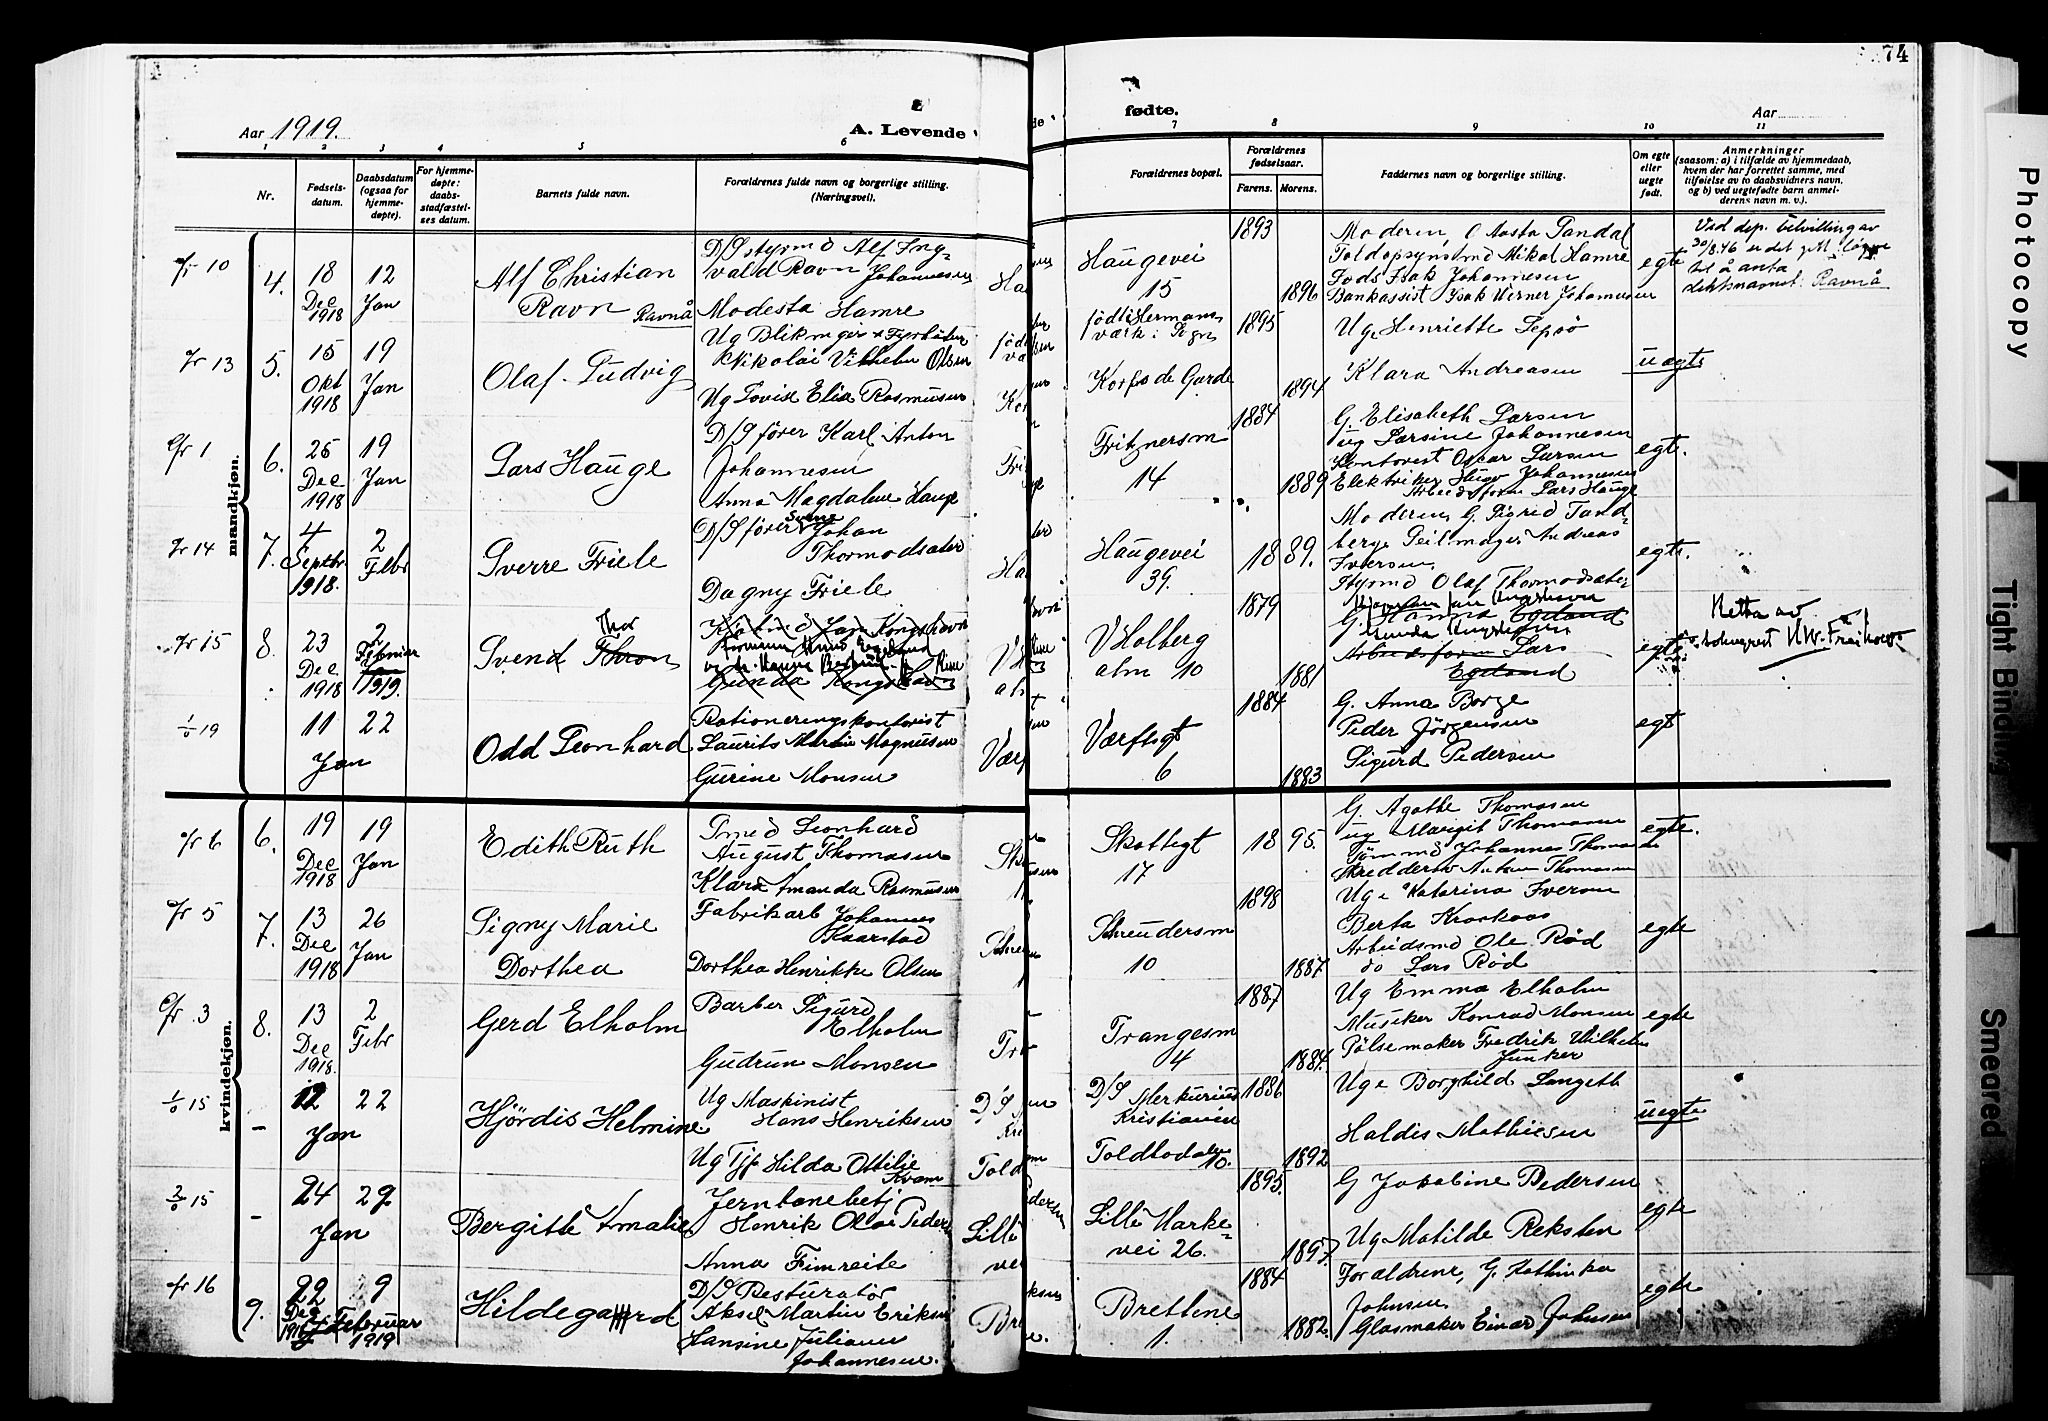 74
Aar 1919.
A. Levende
fødte.
Aar
1
2
3
4
5
6
7
8
9
10
11
Nr.
Fødsels-
datum.
Daabsdatum
(ogsaa for
hjemme-
døpte).
For hjemme-
døpte:
daabs-
stadfæstel-
ses datum.
Barnets fulde navn.
Forældrenes fulde navn og borgerlige stilling.
(Næringsvei).
Forældrenes bopæl.
Forældrenes
fødselsaar.
Farens.
Morens.
Faddernes navn og borgerlige stilling.
Om egte
eller
uegte
født.
Anmerkninger
(saasom: a) i tilfælde av hjemmedaab,
hvem der har forrettet samme, med
tilføielse av to daabsvidners navn,
og b) ved uegtefødte barn anmel-
derens navn m. v.).
mandkjøn.
4.
18
Dec
1918
12
Jan
Alf Christian
Ravn Ravnå
D/S styrmd Alf Ing-
vald Ravn Johannesen
Modesta Hamre
Haugevei
15
1893
1896
Moderen, Aasta Sandal
Toldopsynsmd Mikal Hamre
Isak Johannesen
Bankassist Isak Werner Johannesen
egte
Ved dep. bevilling av
30/8.46 er det gitt
til å anta
slektsnavnet: Ravnå
5.
15
Okt
1918
19
Jan
Olaf Ludvig
Ug Blikmager
Nikolai Vilhelm Olsen
Ug Lovise Elia Rasmussen
født i Hermans
værk i Sogn
Korfs de Garde
1895
1894
Ug Henriette Sepsø
Klara Andreasen
uegte
6.
25
Dec
1918
19
Jan
Lars Hauge
D/S fører Karl Anton
Johannesen
Anna Magdalene Hauge
Fritznersm
14
1884
1889
G. Elisabeth Larsen
ug Larsine Johannesen
Kontorist Oscar Larsen
Elektriker Hugo Johannesen
Arbeidsform Lars Hauge
egte.
7.
4
Septbr
1918.
2
Febr
Sverre Friele
D/S fører Johan
Thormodsæter
Dagny Friele
Haugevei
39.
1889.
Moderen, G. Sigrid Sand-
berg, Seilmager Andreas
Iversen,
Styrmd Olaf Thormodsæter
egte.
8.
23
Dec
1918
2
Februar
1919.
Svend Thor
Gunda Kongshavn
V Holberg
alm 10
1879
1881
Arbeidsform Lars
Egeland
egte
Retta av
19
11
Jan
22
Odd Leonhard
Rationeringskontorist
Laurits Martin Magnussen
Gurine Monsen
Værftsgt
6
1884
1883
G. Anna Borge
Peder Jørgensen
Sigurd Pedersen
egte
kvindekjøn.
6.
19
Dec
1918
19
Jan
Edith Ruth
Smed Leonhard
August Thomasen
Klara Amanda Rasmussen
Skottegt
17
1895.
G. Agathe Thomasen
ug Margit Thomasen
Tømmd Johannes Thomasen
Skredderm Anton Thomasen
egte.
7.
13
Dec
1918
26
Jan
Signy Marie
Dorthea
Fabrikarb Johannes
Kaarstad
Dorthea Henrikke Olsen
Schreudersm
10
1898
1887
Uge Katarina Iversen
Berta
Arbeidsmd Ole Rød
do Lars Rød
egte
8.
13
Dec
1918.
2
Febr
Gerd Elholm
Barber Sigurd
Elholm
Gudrun Monsen
Trangesm
4
1887
1884.
Ug Emma Elholm
Musiker Konrad Monsen
Pølsemaker Fredrik Wilhelm
Junker
egte
15
12
Jan
22
Hjørdis Helmine
Ug Maskinist
Hans Henriksen
Ug Tjp Hilda Ottilie
Kvam
D/S Merkurius
Kristiania
Toldbodalm
10.
1886
1892
Uge Borghild Langeth
Haldis Mathiesen
uegte
15
24
Jan
29
Bergithe Amalie
Jernbanebetj
Henrik Olai Pedersen
Anna Fimreite
Lille Marke-
vei 26.
1895.
1897
G Jakobine Pedersen
Ug Matilde Reksten
egte
9.
22
Dec
9
Februar
1919
Hildegaard
D/S Resturatør
Aksel Martin Eriksen
Hansine Juliane
Johannesen.
Brettene
1.
1884
1882
Forældrene, G. Kathinka
Johnsen,
Glasmaker Einar Johnsen
egte
Photocopy
Tight Binding
Smeared